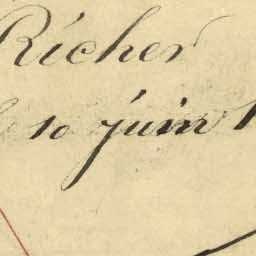 Richer
10 juin 1